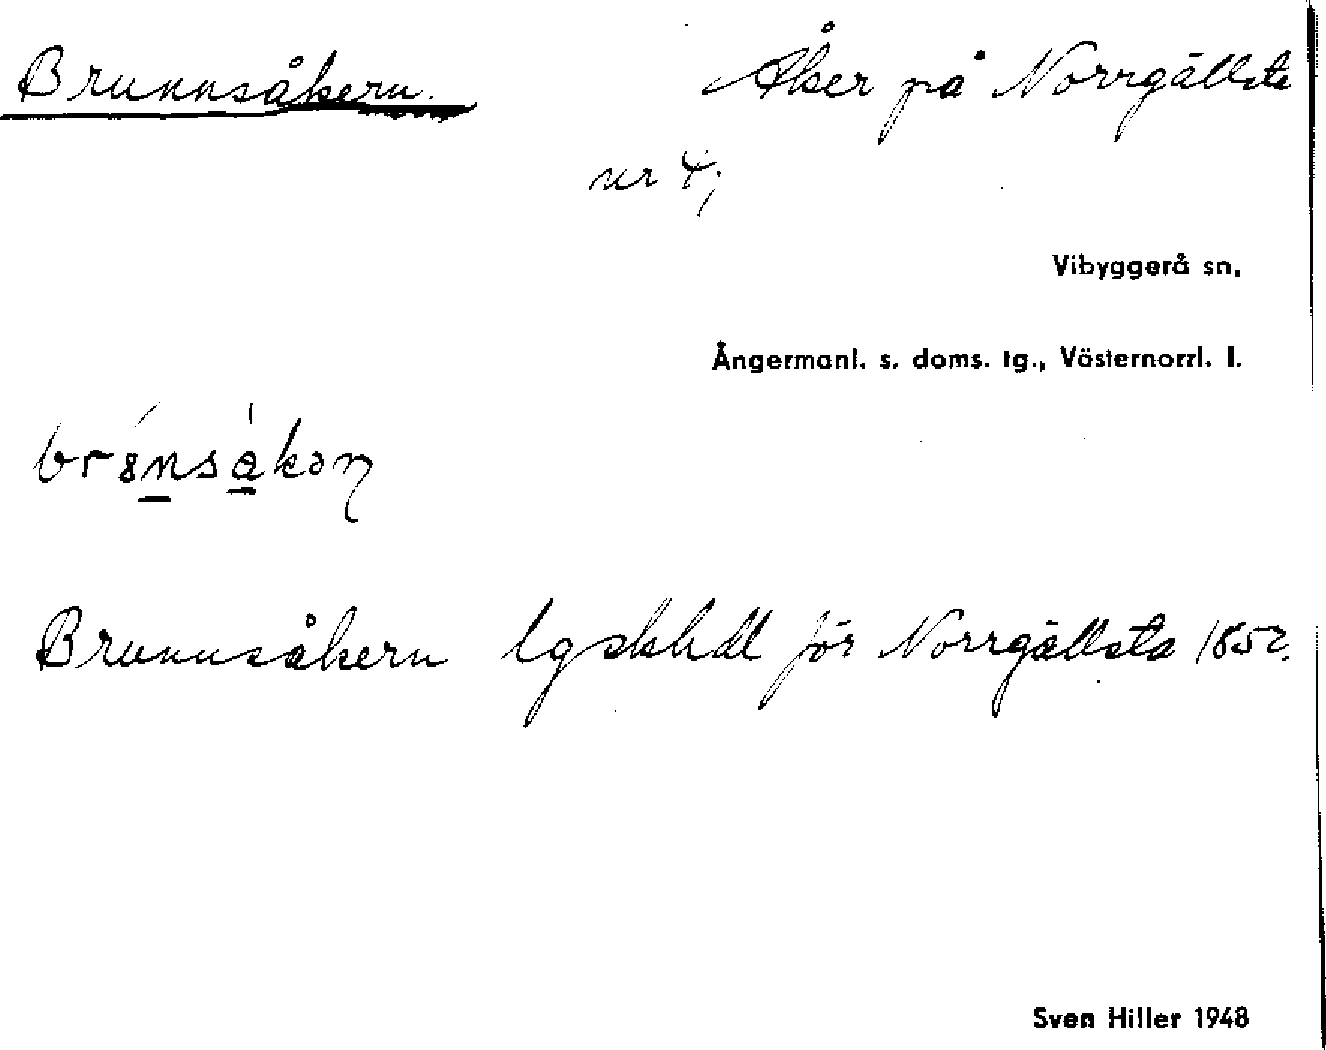 Brunnsåkern. Åker på Norrgällsta
nr 4;
Vibyggerå sn.
Ångermanl. s. doms. tg., Västernorrl. l.
Brunnsåkern lgskhdl för Norrgällsta 1852.
Sven Hiller 1948